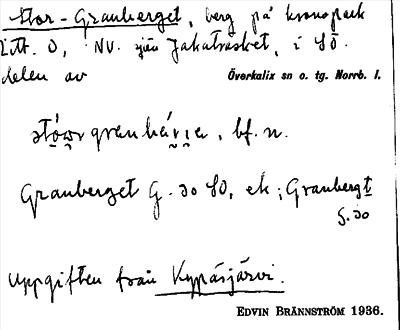 Stor-Granberget, berg på kronopark
Litt. O, NV. från Jakaträsket, i SÖ.
delen av Överkalix sn o. tg. Norrb. l.
bf. n.
Granberget G. 30 SO, ek; Granbergt
G. 30
Uppgiften från Kypäsjärvi.
EDVIN BRÄNNSTRÖM 1936.